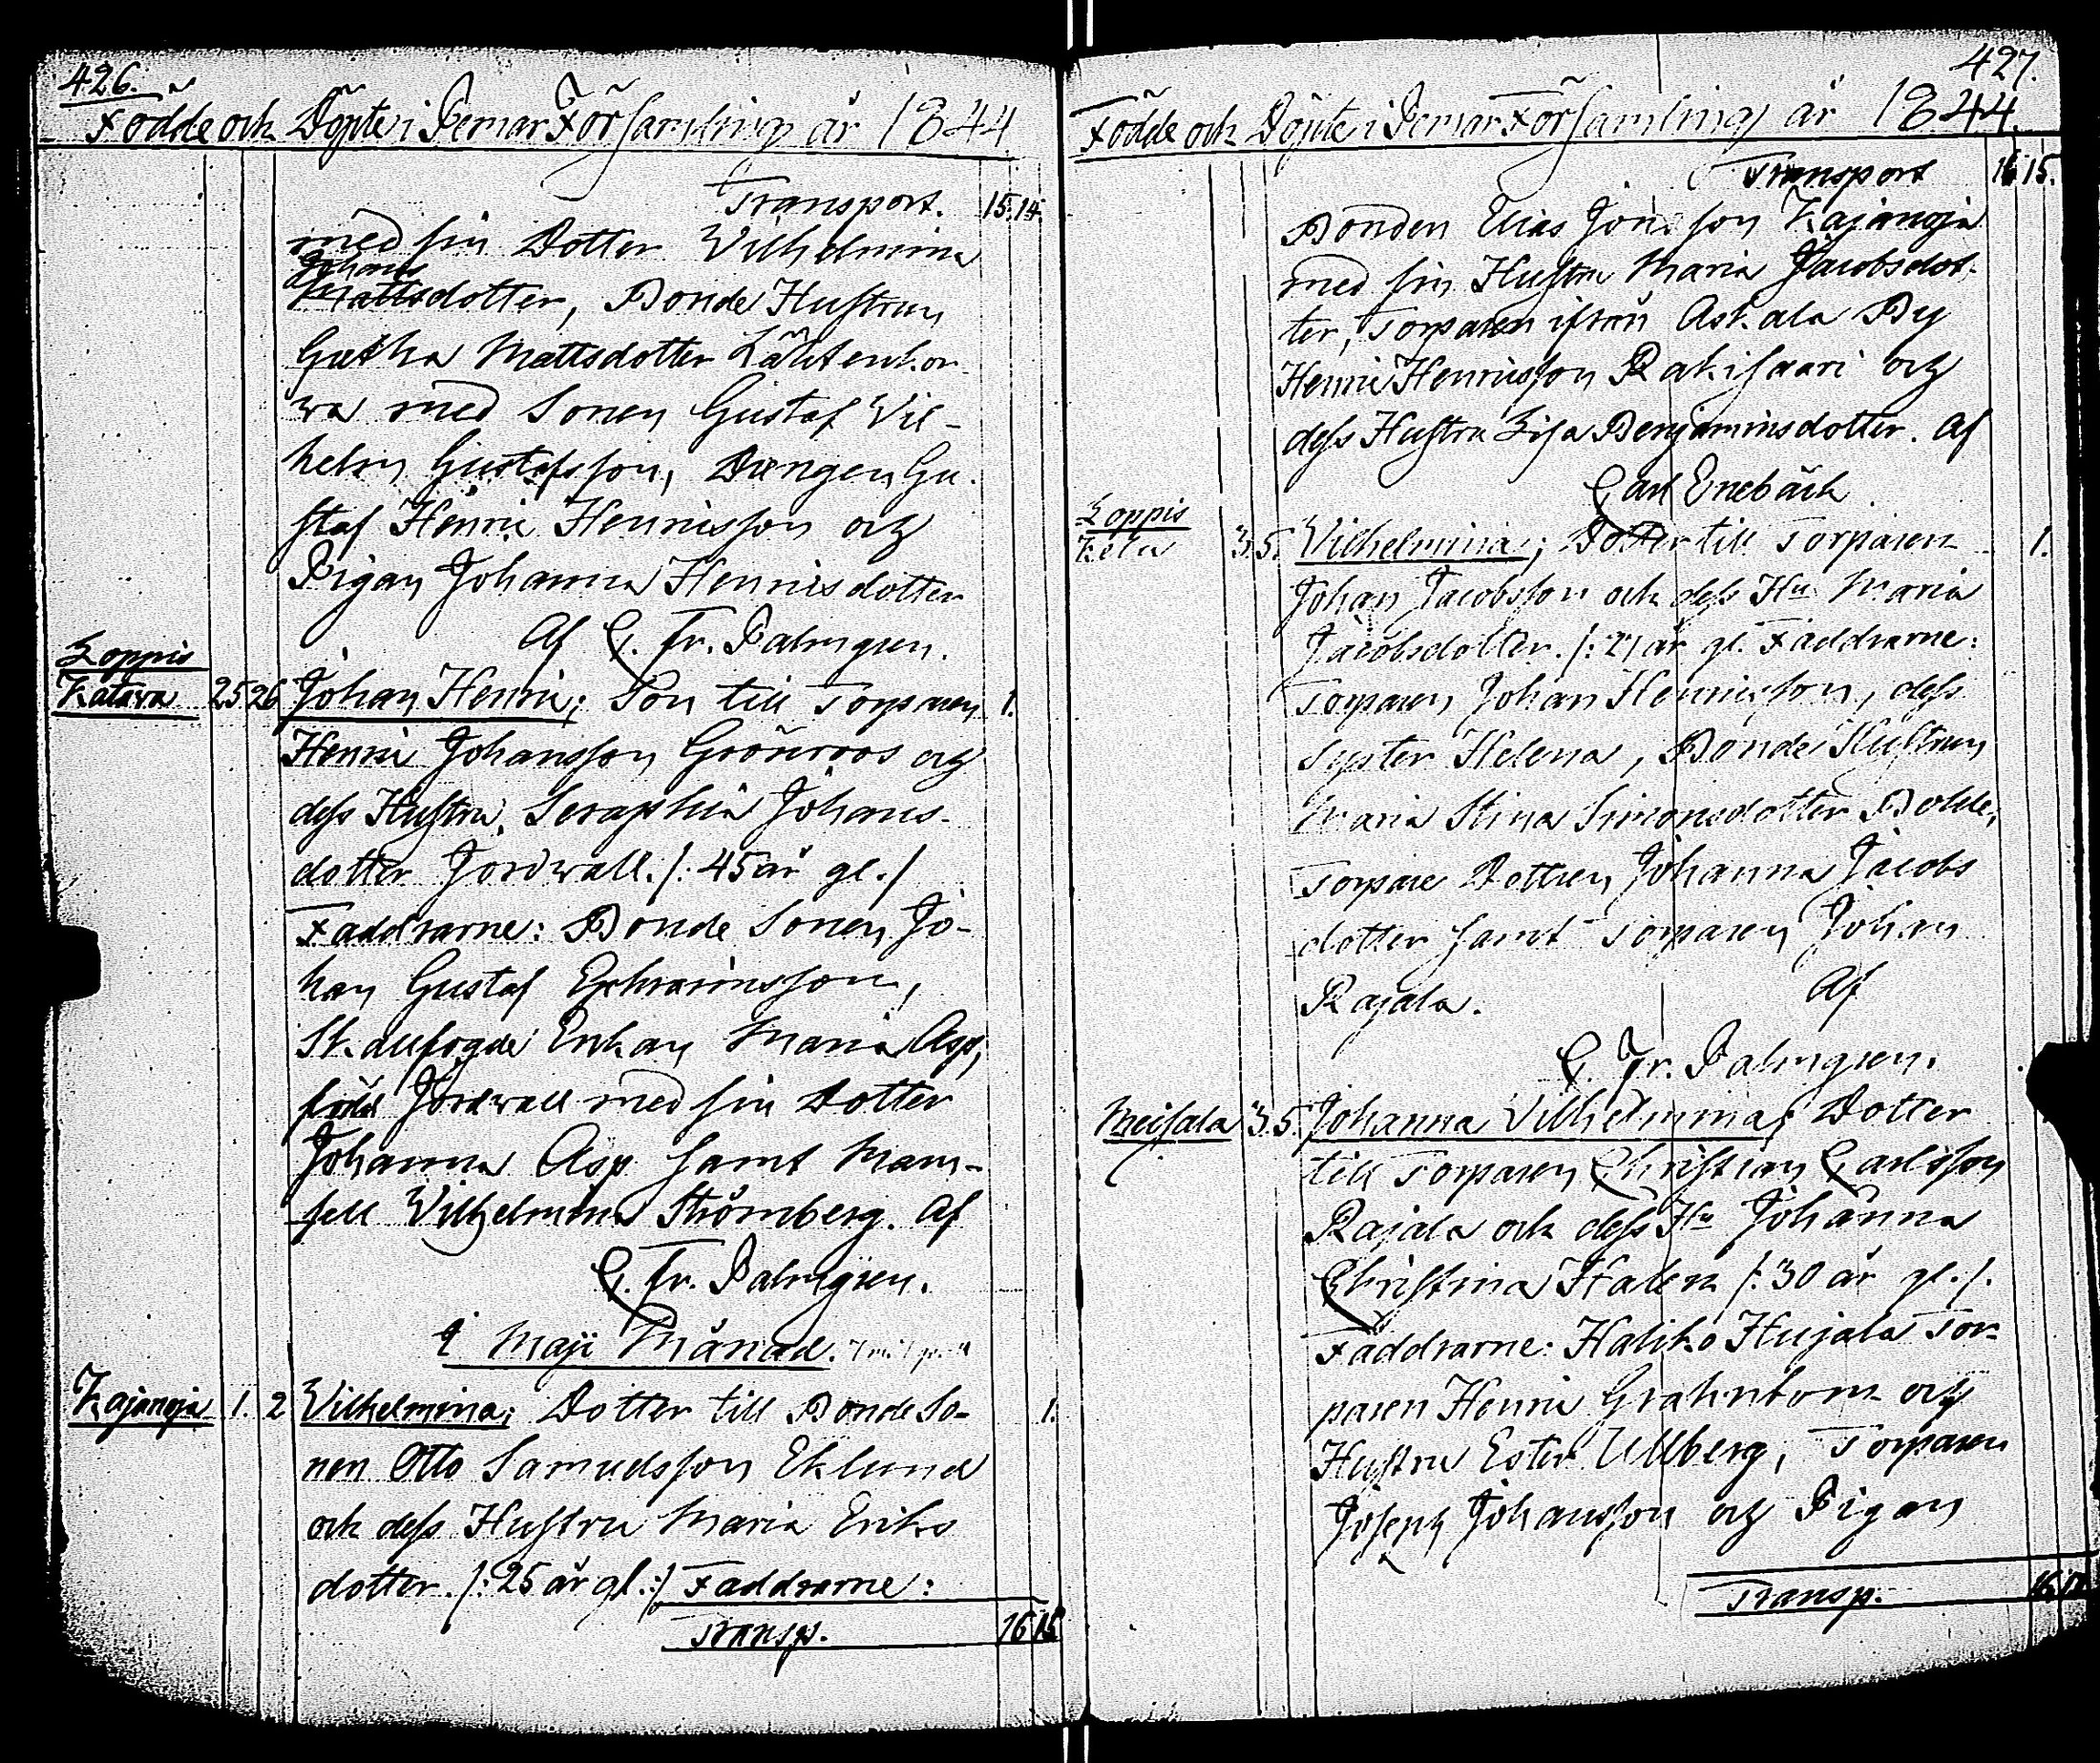 426.
Födde och Döpte i Pemar Församling år 1844
Transport. 15. 14.
med sin Dotter Vilhelmina
Johans
Mattsdotter, Bonde Hustrun
Gretha Mattsdotter Lähtenkor-
va med Sonen Gustaf Vil-
helm Gustafsson, Drengen Gu-
staf Henric Henricsson och
Pigan Johanna Henricsdotter
Af C. Fr. Palmgren.
Loppis
Katava 25 26 Johan Henric; Son till Torparen 1.
Henric Johansson Grönroos och
dess Hustru, Seraphia Johans-
dotter Jordwall. /: 45 år gl. /
Faddrarne: Bonde Sonen Jo-
han Gustaf Ephraimsson,
Skallfogde Enkan Maria Asp,
född Jordwall med sin Dotter
Johanna Asp samt Mam-
sell Vilhelmina Strömberg. Af
C. Fr. Palmgren.
I Maji Månad.
Kajanoja 1. 2 Vilhelmina; Dotter till Bonde So- 1.
nen Otto Samuelsson Eklund
och dess Hustru Maria Eriks
dotter. /: 25 år gl. :/ Faddrarne:
Transp. 16 15
427.
Födde och Döpte i Pemar Församling år 1844.
Transport 16 15.
Bonden Elias Jönsson Kajanoja
med sin Hustru Maria Jacobsdot-
ter, Torparen ifrån Askala By
Henric Henricsson Rakisaari och
dess Hustru Lisa Benjaminsdotter. Af
Carl Enebäck
Loppis
Kelu 3. 5. Vilhelmina; Dotter till Torparen 1.
Johan Jacobsson och dess Hu Maria
Jacobsdotter. /: 21 år gl. Faddrarne:
Torparen Johan Henricsson, dess
Syster Helena, Bonde Hustrun
Maria Stina Simonsdotter
Torpare Dottren Johanna Jacobs
dotter samt Torparen Johan
Rajala. Af
C. Fr. Palmgren.
Meisala 3. 5. Johanna Vilhelmina; Dotter
till Torparen Christian Carlsson
Rajala och dess Hu Johanna
Christina Halen /: 30 år gl. /.
Faddrarne: Haliko Hujala Tor-
paren Henric Grahnbom och
Hustru Ester Ullberg, Torparen
Joseph Johansson och Pigan
Transp. 16